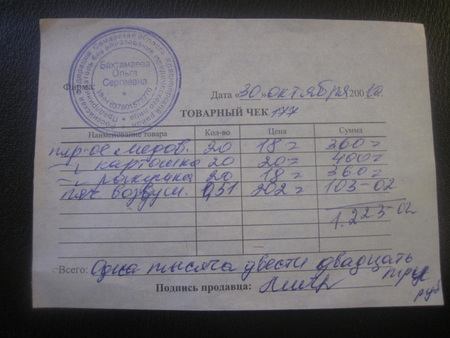 Бахтамаева
Ольга
Сергеевна
Фирма:
Дата «30» октября 200
ТОВАРНЫЙ ЧЕК 177
Наименование товара Кол-во Цена Сумма
пир-ое медов. 20 18= 360=
картошка 20 20= 400=
20 18= 360=
печ воздуш. 0,51 202= 103-02
1.223-02
Всего: Одна тысяча двести двадцать
три руб
Подпись продавца: